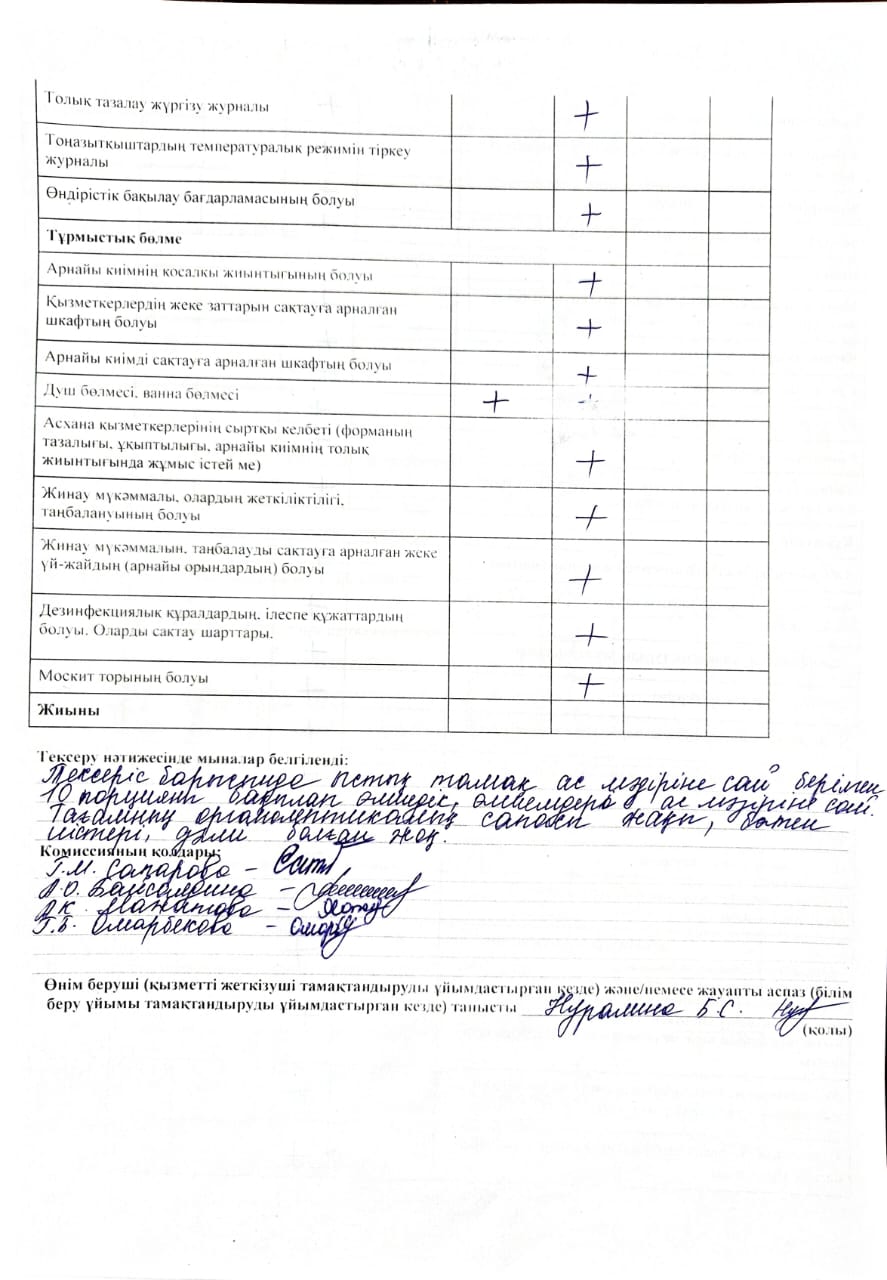 Толық тазалау жүргізу журналы +
Тоңазытқыштардың температуралық режимін тіркеу
журналы +
Өндірістік бақылау бағдарламасының болуы +
Тұрмыстық бөлме
Арнайы киімнің қосалқы жиынтығының болуы +
Қызметкерлердің жеке заттарын сақтауға арналған
шкафтың болуы +
Арнайы киімді сақтауға арналған шкафтың болуы +
Душ бөлмесі, ванна бөлмесі +
Асхана қызметкерлерінің сыртқы келбеті (форманың
тазалығы, ұқыптылығы, арнайы киімнің толық
жиынтығында жұмыс істей ме) +
Жинау мүкәммалы, олардың жеткіліктілігі,
таңбалануының болуы +
Жинау мүкәммалын, таңбалауды сақтауға арналған жеке
үй-жайдың (арнайы орындардың) болуы +
Дезинфекциялық құралдардың, ілеспе құжаттардың
болуы. Оларды сақтау шарттары. +
Москит торының болуы +
Жиыны
Тексеру нәтижесінде мыналар белгіленді:
Тексеріс барысында ыстық тамақ ас мәзіріне сай берілген
10 порцияны бақылап өлшедік, ас мәзіріне сай.
Тағамның органолептикалық сапасы жақсы, бөтен
иістері, дәмі болған жоқ.
Комиссияның қолдары:
Г.М. Сапарова -
А.О. Байсалдина -
А.К. Мажитова -
Г.Б. Омарбекова -
Өнім беруші (қызметті жеткізуші тамақтандыруды ұйымдастырған кезде) және/немесе жауапты аспаз (білім
беру ұйымы тамақтандыруды ұйымдастырған кезде) танысты Нуралина Б.С.
(қолы)